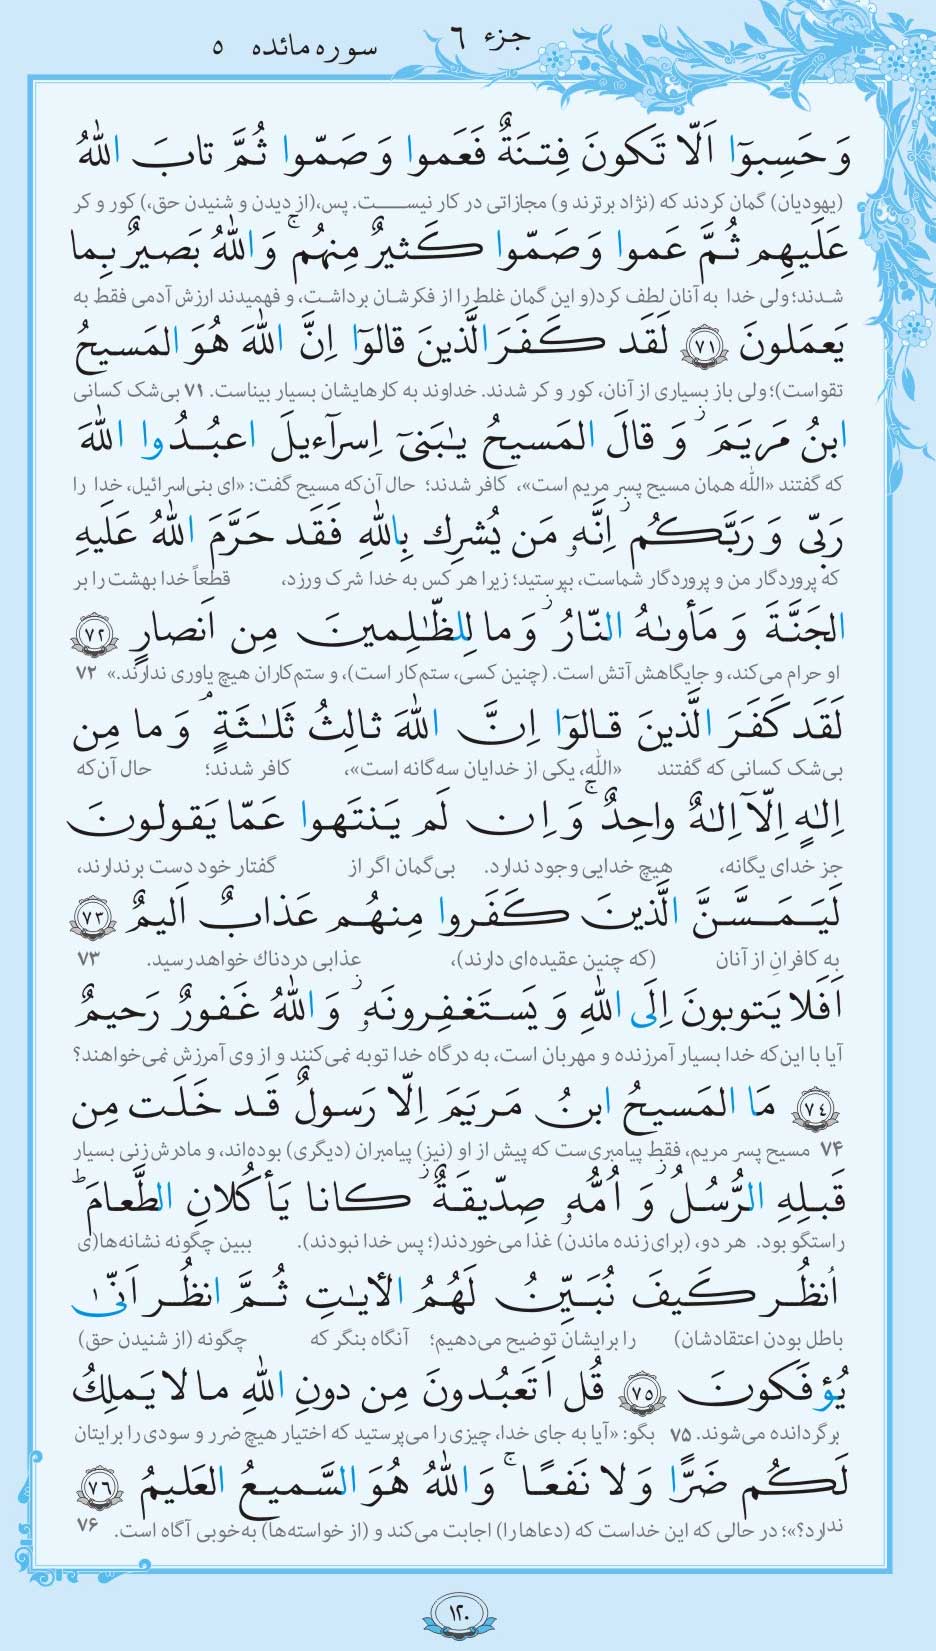 جزء ۶
سوره مائده ۵
وَ حَسِبوٓا اَلّا تَکونَ فِتنَةٌ فَعَموا وَ صَمّوا ثُمَّ تابَ اللّٰهُ
(یهودیان) گمان کردند که (نژاد برترند و) مجازاتی در کار نیست. پس،(از دیدن و شنیدن حق،) کور و کر
عَلَیهِم ثُمَّ عَموا وَ صَمّوا کَثیرٌ مِنهُم ۚ وَ اللّٰهُ بَصیرٌ بِما
شدند؛ ولی خدا به آنان لطف کرد(و این گمان غلط را از فکرشان برداشت، و فهمیدند ارزش آدمی فقط به
یَعمَلونَ ﴿۷۱﴾ لَقَد کَفَرَ الَّذینَ قالوٓا اِنَّ اللّٰهَ هُوَ المَسیحُ
تقواست)؛ ولی باز بسیاری از آنان، کور و کر شدند. خداوند به کارهایشان بسیار بیناست. ۷۱ بی‌شک کسانی
ابنُ مَریَمَ ۖ وَ قالَ المَسیحُ یٰبَنیٓ اِسرآءیلَ اعبُدُوا اللّٰهَ
که گفتند «اللّه همان مسیح پسر مریم است»، کافر شدند؛ حال آن‌که مسیح گفت: «ای بنی‌اسرائیل، خدا را
رَبّی وَ رَبَّکُم ۖ اِنَّهٗ مَن یُشرِك بِاللّٰهِ فَقَد حَرَّمَ اللّٰهُ عَلَیهِ
که پروردگار من و پروردگار شماست، بپرستید؛ زیرا هر کس به خدا شرک ورزد، قطعاً خدا بهشت را بر
الجَنَّةَ وَ مَأوىٰهُ النّارُ ۖ وَ ما لِلظّٰلِمینَ مِن اَنصارٍ ﴿۷۲﴾
او حرام می‌کند، و جایگاهش آتش است. (چنین کسی، ستم‌کار است)، و ستم‌کاران هیچ یاوری ندارند.» ۷۲
لَقَد کَفَرَ الَّذینَ قالوٓا اِنَّ اللّٰهَ ثالِثُ ثَلٰثَةٍ ۘ وَ ما مِن
بی‌شک کسانی که گفتند «اللّه، یکی از خدایان سه‌گانه است»، کافر شدند؛ حال آن‌که
اِلٰهٍ اِلّآ اِلٰهٌ واحِدٌ ۚ وَ اِن لَم یَنتَهوا عَمّا یَقولونَ
جز خدای یگانه، هیچ خدایی وجود ندارد. بی‌گمان اگر از گفتار خود دست برندارند،
لَیَمَسَّنَّ الَّذینَ کَفَروا مِنهُم عَذابٌ اَلیمٌ ﴿۷۳﴾
به کافرانِ از آنان (که چنین عقیده‌ای دارند)، عذابی دردناك خواهد رسید. ۷۳
اَفَلا یَتوبونَ اِلَی اللّٰهِ وَ یَستَغفِرونَهٗ ۖ وَ اللّٰهُ غَفورٌ رَحیمٌ
آیا با این‌که خدا بسیار آمرزنده و مهربان است، به درگاه خدا توبه نمی‌کنند و از وی آمرزش نمی‌خواهند؟
﴿۷۴﴾ مَا المَسیحُ ابنُ مَریَمَ اِلّا رَسولٌ قَد خَلَت مِن
۷۴ مسیح پسر مریم، فقط پیامبری‌ست که پیش از او (نیز) پیامبران (دیگری) بوده‌اند، و مادرش زنی بسیار
قَبلِهِ الرُّسُلُ ۖ وَ اُمُّهٗ صِدّیقَةٌ ۖ کانا یَأکُلانِ الطَّعامَ ۗ
راستگو بود. هر دو، (برای زنده ماندن) غذا می‌خوردند(؛ پس خدا نبودند). ببین چگونه نشانه‌ها(ی
اُنظُر کَیفَ نُبَیِّنُ لَهُمُ الأیٰتِ ثُمَّ انظُر اَنّیٰ
باطل بودن اعتقادشان) را برایشان توضیح می‌دهیم؛ آنگاه بنگر که چگونه (از شنیدن حق)
یُؤفَکونَ ﴿۷۵﴾ قُل اَتَعبُدونَ مِن دونِ اللّٰهِ ما لا یَملِكُ
برگردانده می‌شوند. ۷۵ بگو: «آیا به جای خدا، چیزی را می‌پرستید که اختیار هیچ ضرر و سودی را برایتان
لَکُم ضَرًّا وَ لا نَفعًا ۚ وَ اللّٰهُ هُوَ السَّمیعُ العَلیمُ ﴿۷۶﴾
ندارد؟»؛ در حالی که این خداست که (دعاها را) اجابت می‌کند و (از خواسته‌ها) به‌خوبی آگاه است. ۷۶
۱۲۰